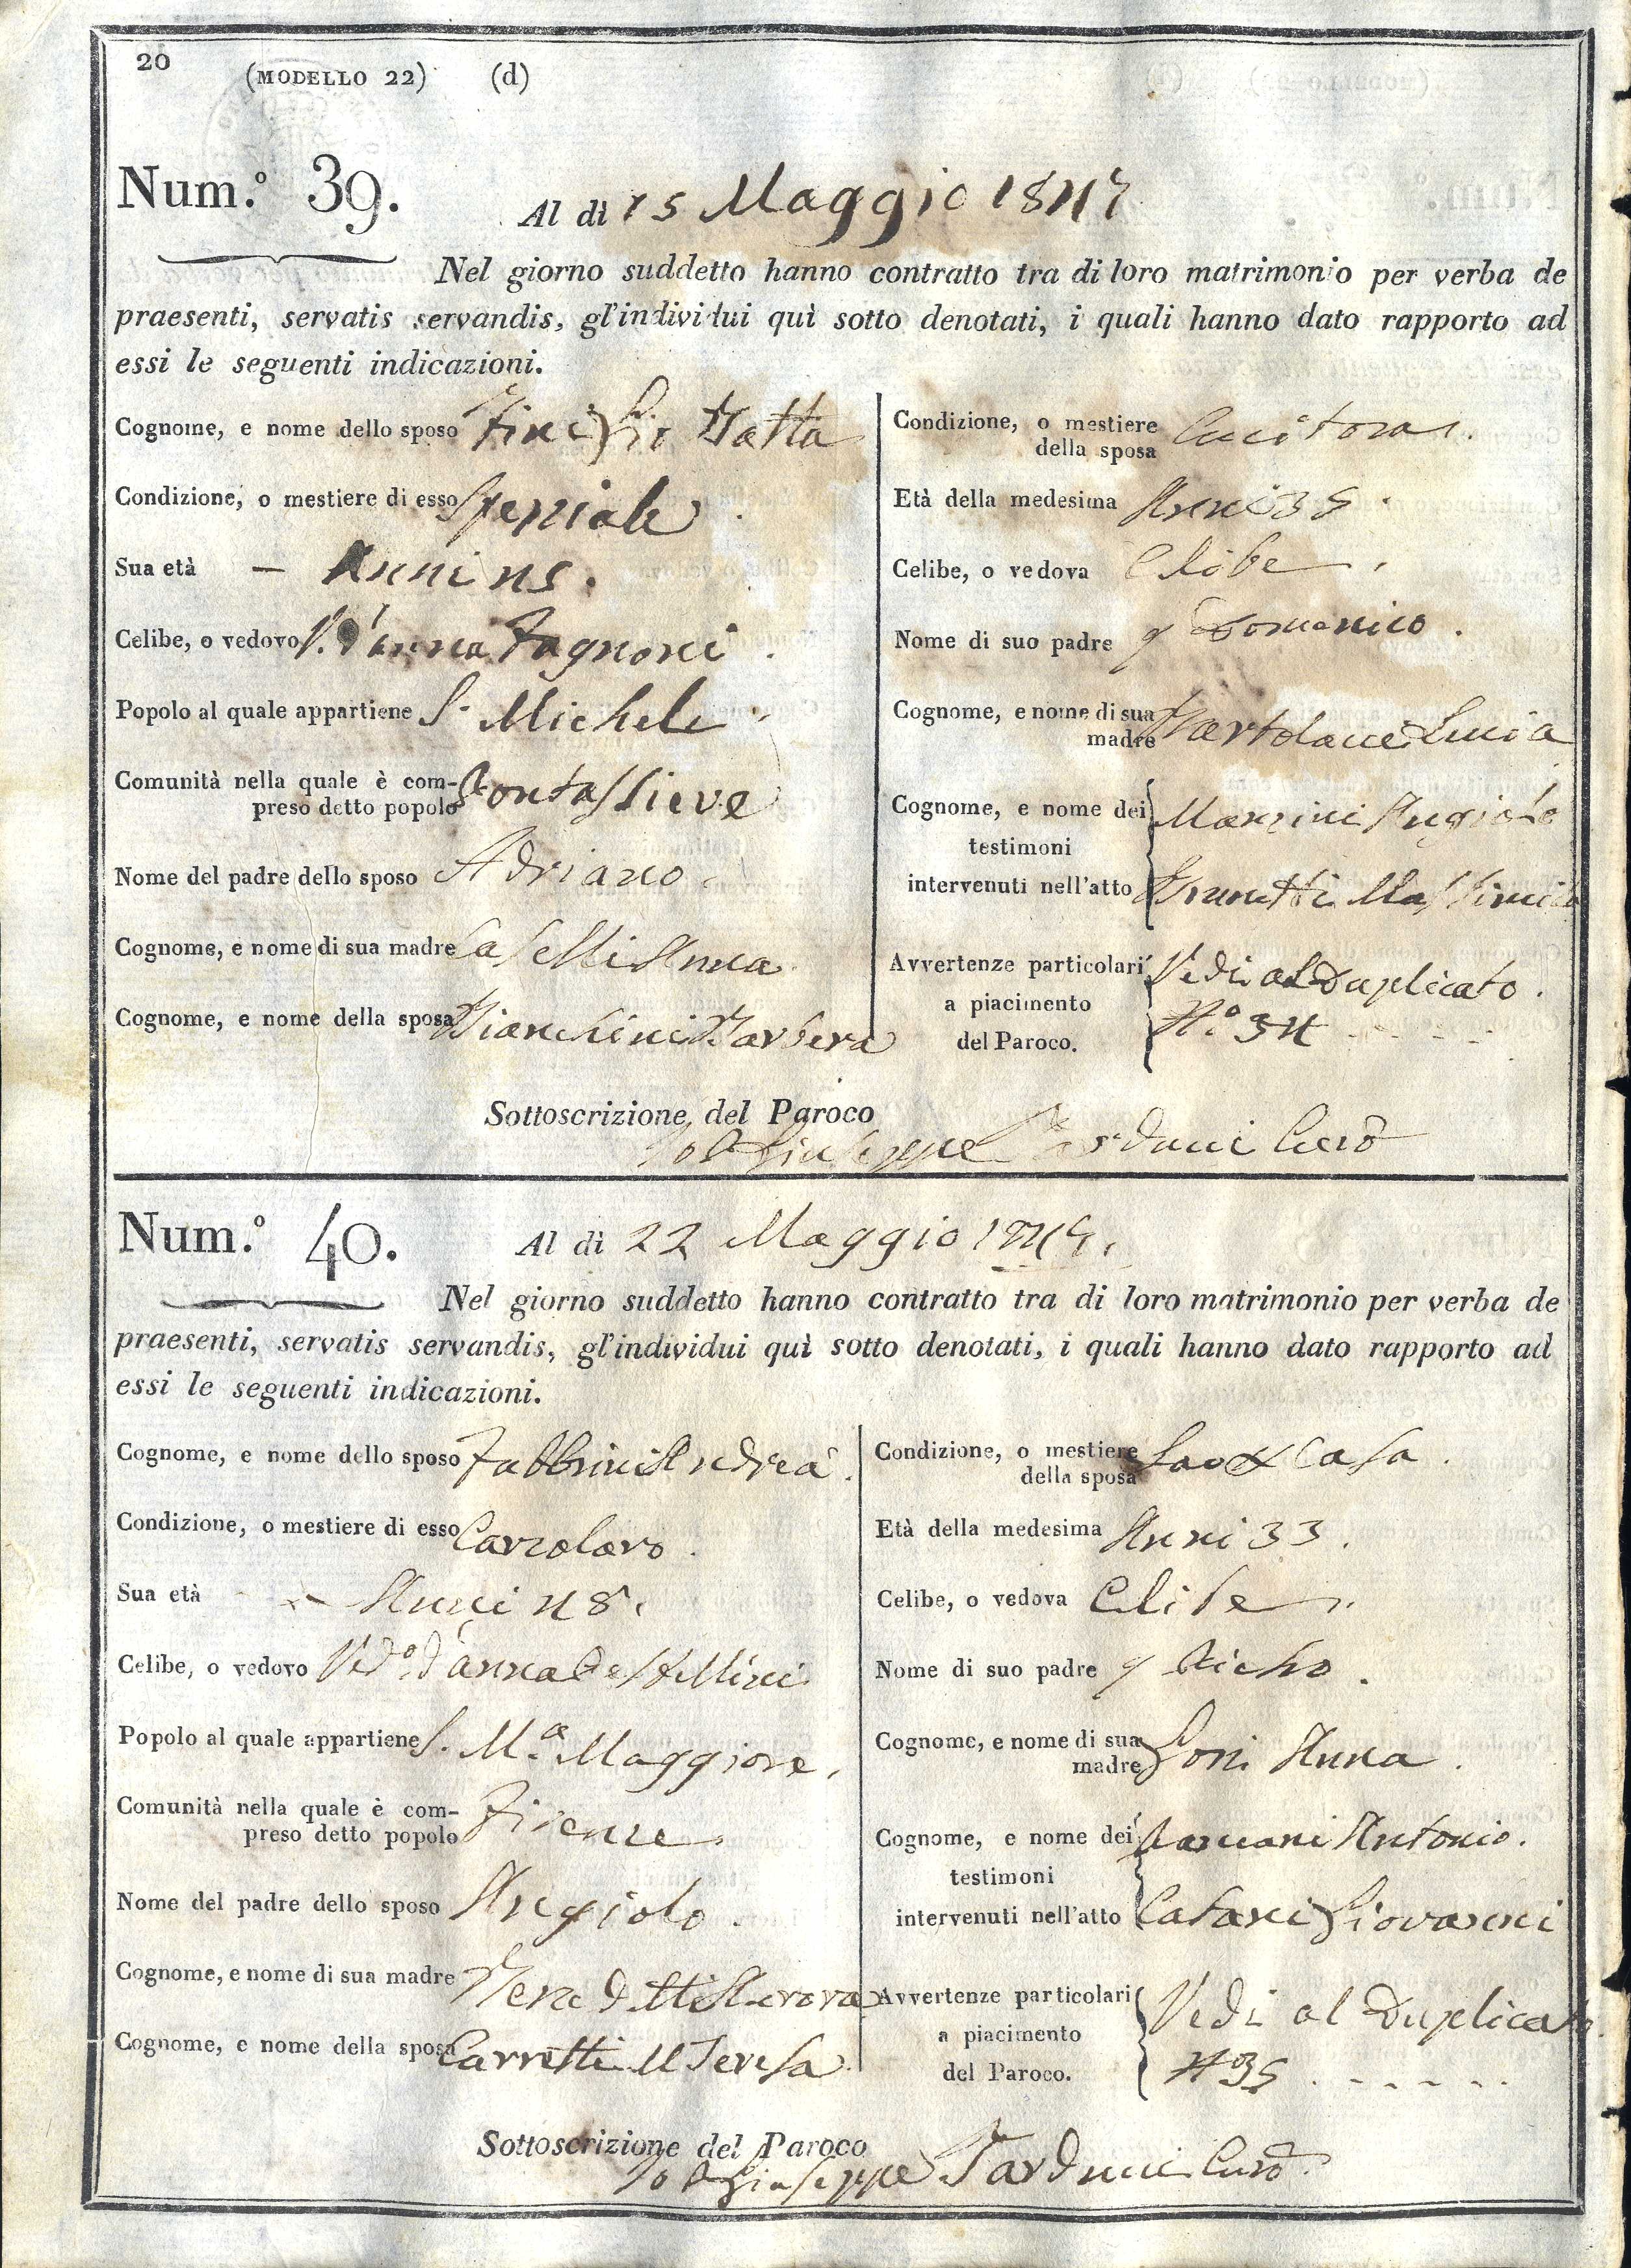 20 (MODELLO 22) (d)
Num.° 39. Al dì 15 Maggio 184
Nel giorno suddetto hanno contratto tra di loro matrimonio per verba de
praesenti, servatis servandis, gl'individui quì sotto denotati, i quali hanno dato rapporto ad
essi le seguenti indicazioni.
Cognome, e nome dello sposo Fini Gio Batta
Condizione, o mestiere di esso Speziale
Sua età — Anni 45.
Celibe, o vedovo V. d'anna Fagnoni
Popolo al quale appartiene S. Michele
Comunità nella quale è com-
preso detto popolo Pontassieve
Nome del padre dello sposo Adriano
Cognome, e nome di sua madre Caselli Anna
Cognome, e nome della sposa Bianchini Barbera
Condizione, o mestiere
della sposa Cucitora.
Età della medesima Anni 35.
Celibe, o vedova Celibe.
Nome di suo padre q Domenico.
Cognome, e nome di sua
madre Bartolacci Lucia
Cognome, e nome dei
testimoni
intervenuti nell'atto
Manzini Angiolo
Brunetti
Avvertenze particolari
a piacimento
del Paroco.
Vedi al Duplicato.
N.° 34
Sottoscrizione del Paroco
Io P Giuseppe Tarducci Curo
Num.° 40. Al dì 22 Maggio 184
Nel giorno suddetto hanno contratto tra di loro matrimonio per verba de
praesenti, servatis servandis, gl'individui quì sotto denotati, i quali hanno dato rapporto ad
essi le seguenti indicazioni.
Cognome, e nome dello sposo Fabbrini Andrea.
Condizione, o mestiere di esso Calzolaro.
Sua età — Anni 48.
Celibe, o vedovo Vedo. d'anna Castellini
Popolo al quale appartiene S. Ma. Maggiore.
Comunità nella quale è com-
preso detto popolo Firenze.
Nome del padre dello sposo Angiolo.
Cognome, e nome di sua madre Benedetti
Cognome, e nome della sposa Carretti M Teresa
Condizione, o mestiere
della sposa Casa.
Età della medesima Anni 33.
Celibe, o vedova Celibe.
Nome di suo padre q
Cognome, e nome di sua
madre Goni Anna.
Cognome, e nome dei
testimoni
intervenuti nell'atto
Antonio.
Catani Giovanni
Avvertenze particolari
a piacimento
del Paroco.
Vedi al Duplicato
N° 35
Sottoscrizione del Paroco
Io P Giuseppe Tarducci Curo.